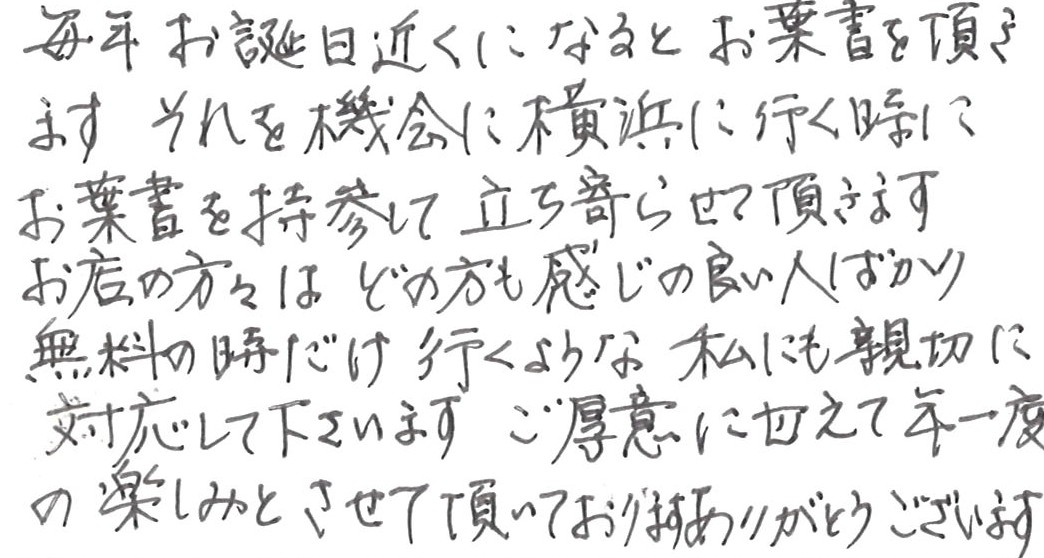 毎年 お誕日近くに なると お葉書を頂き
ます それを機会に横浜に行く時に
お葉書を持参して 立ち寄らせて頂きます
お店の方々は どの方も感じの良い人ばかり
無料の時だけ 行くような 私にも親切に
対応して下さいます ご厚意に甘えて年一度
の楽しみと させて頂いております ありがとうございます